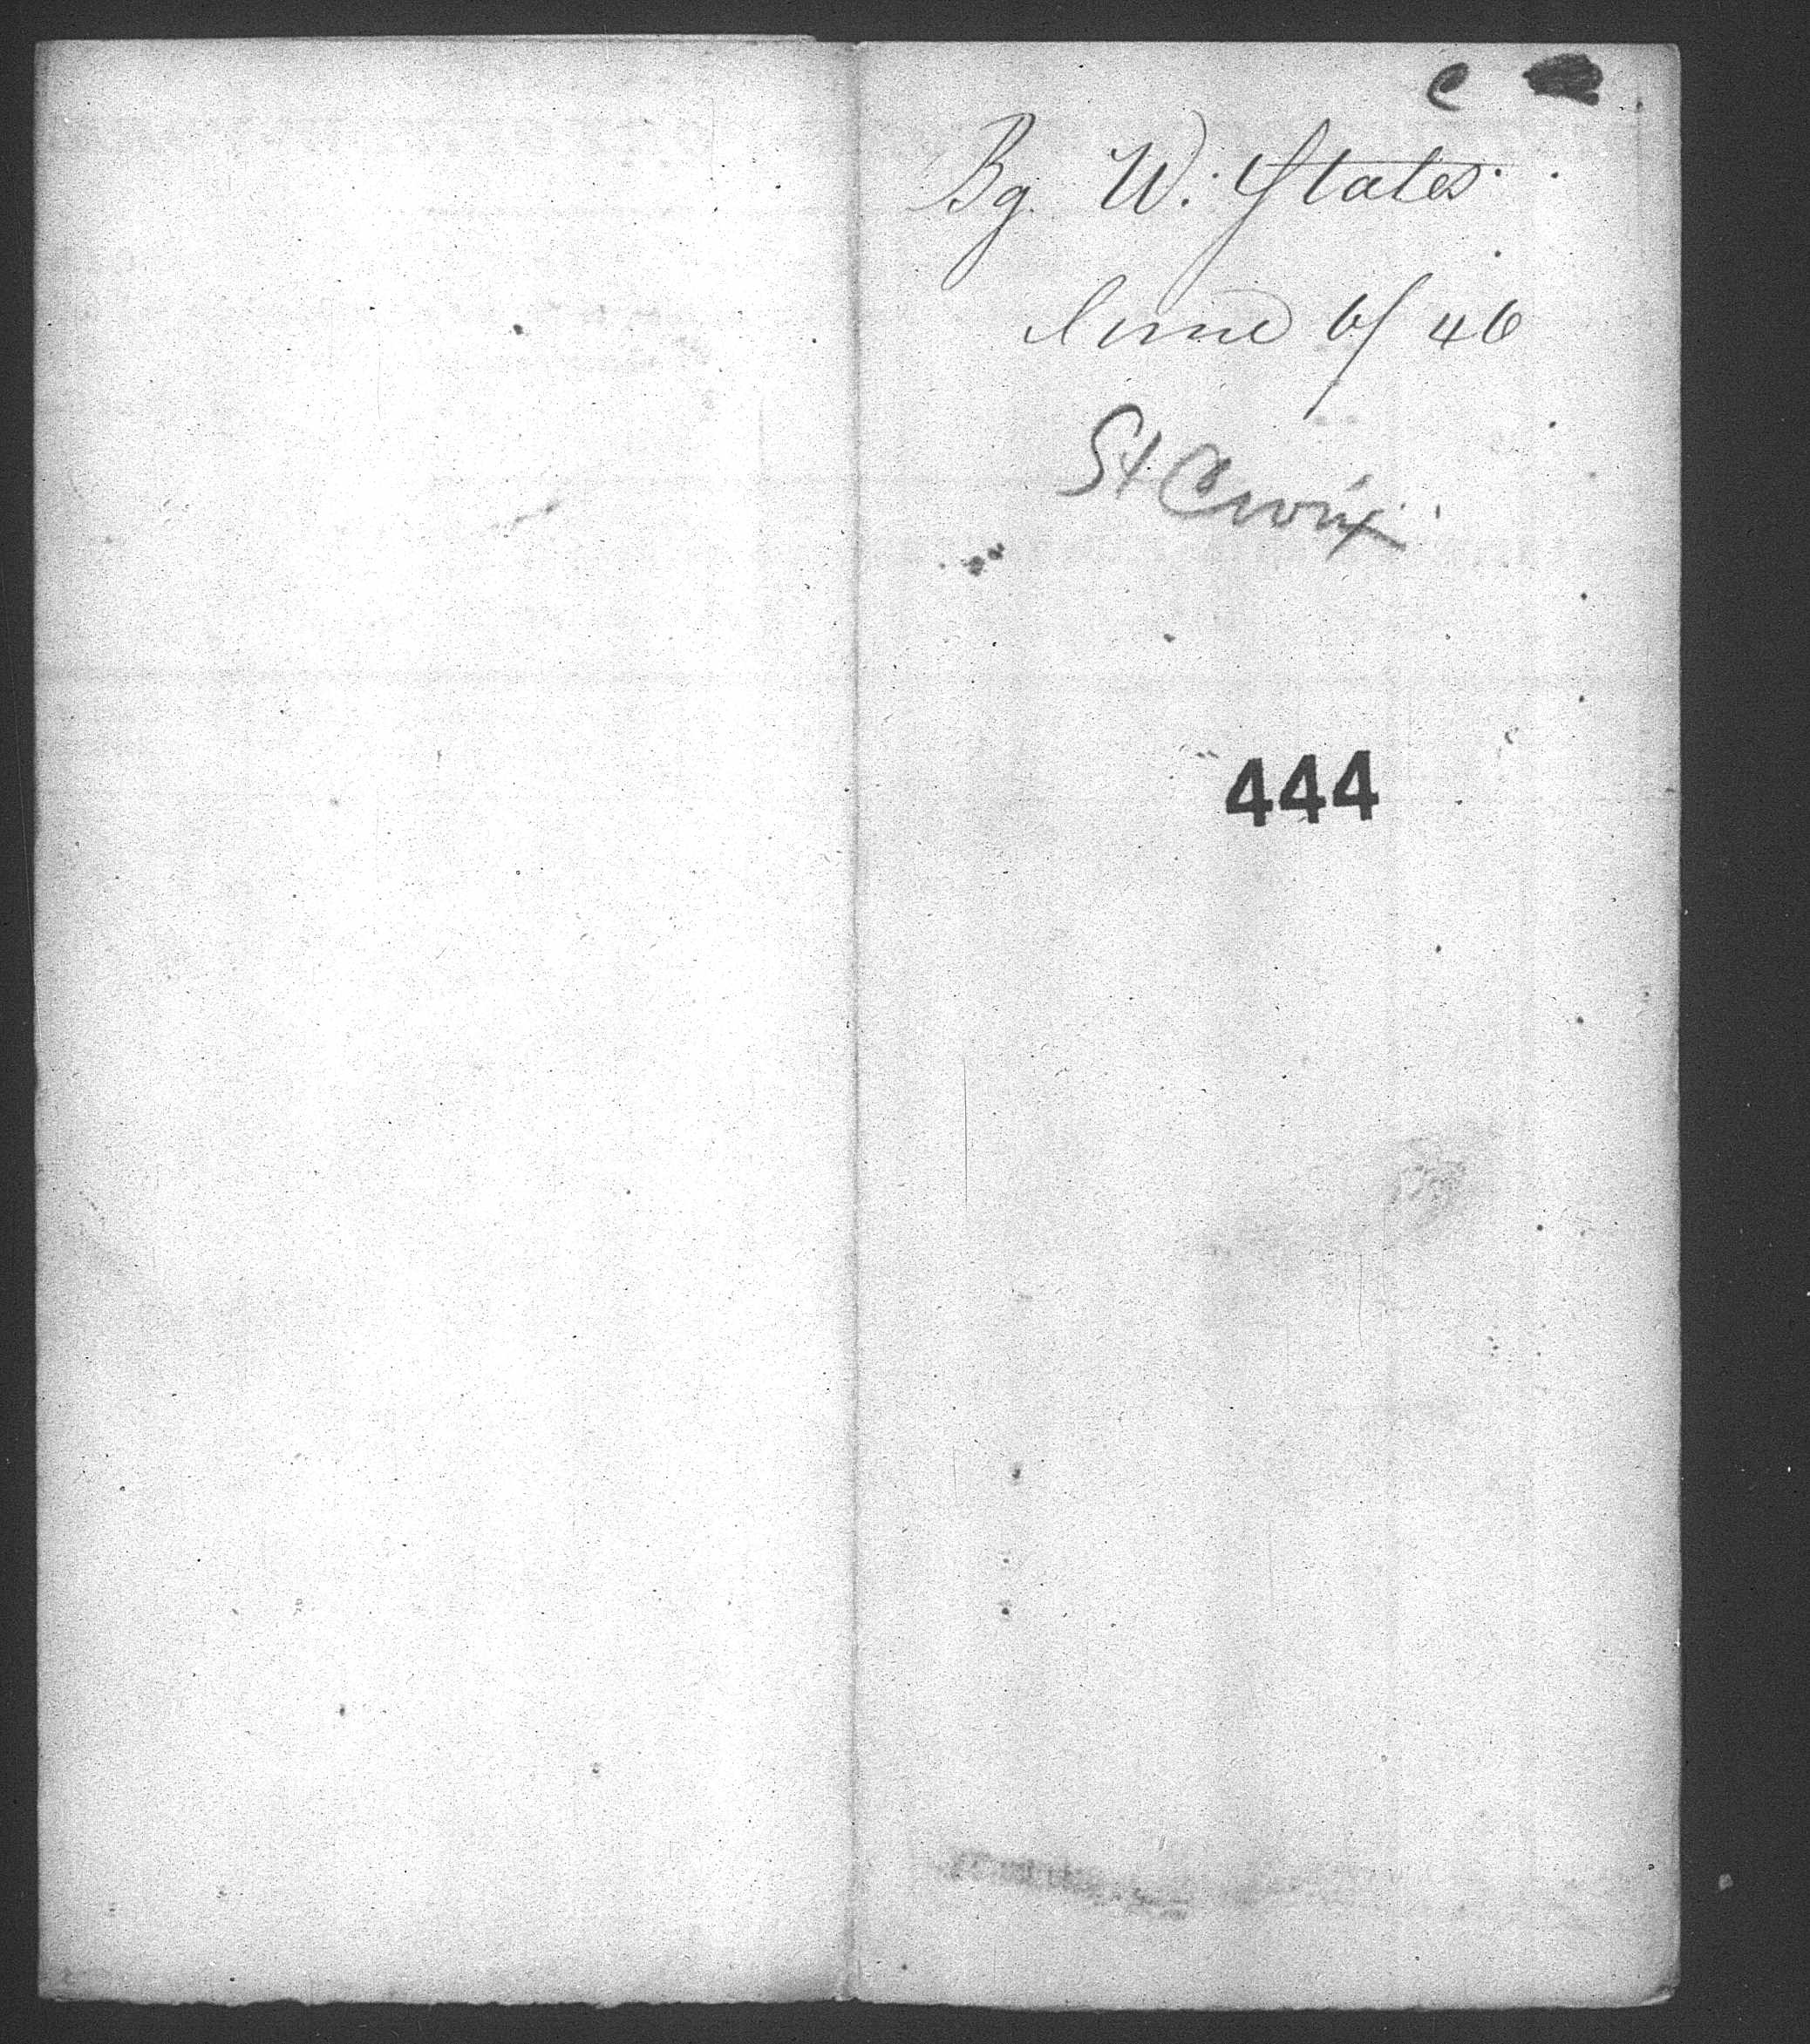 C
Bg. W. States
June 6/46
St Croix
444